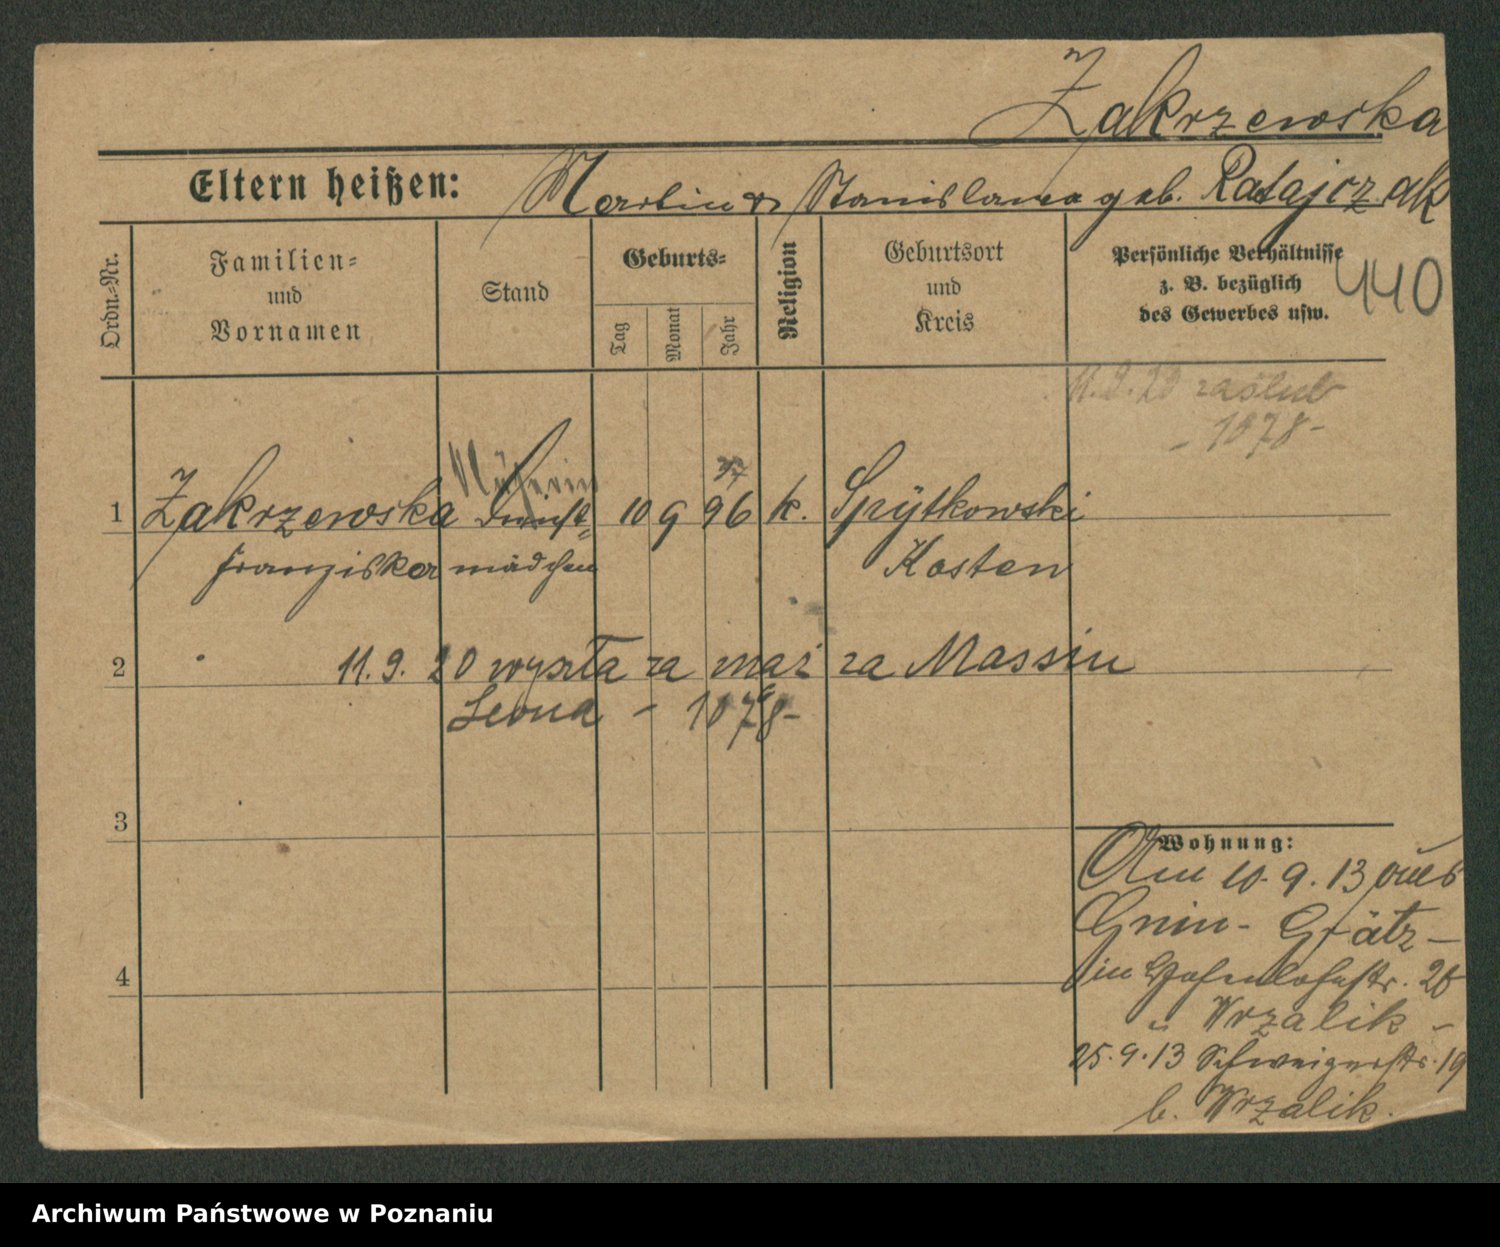 Zakrzewska
Eltern heißen: Martin & Stanislawa geb. Ratajczak
Ordn.-Nr.
Familien-
und
Vornamen
Stand
Geburts-
Tag
Monat
Jahr
Religion
Geburtsort
und
Kreis
Persönliche Verhältnisse
z. B. bezüglich
des Gewerbes usw.
440
11.9.20 zaślub
- 1078 -
Näherin
97
1 Zakrzewska Dienst- 10 9 96 k. Spytkowski
Franziska mädchen Kosten
2 11.9.20 wyszła za mąż za Massiu
Leona - 1078 -
3
4
Wohnung:
Am 10.9.13 aus
Gnin - Grätz -
in Hohenlohestr. 26
Wrzalik -
25.9.13 19
b. Wrzalik.
Archiwum Państwowe w Poznaniu